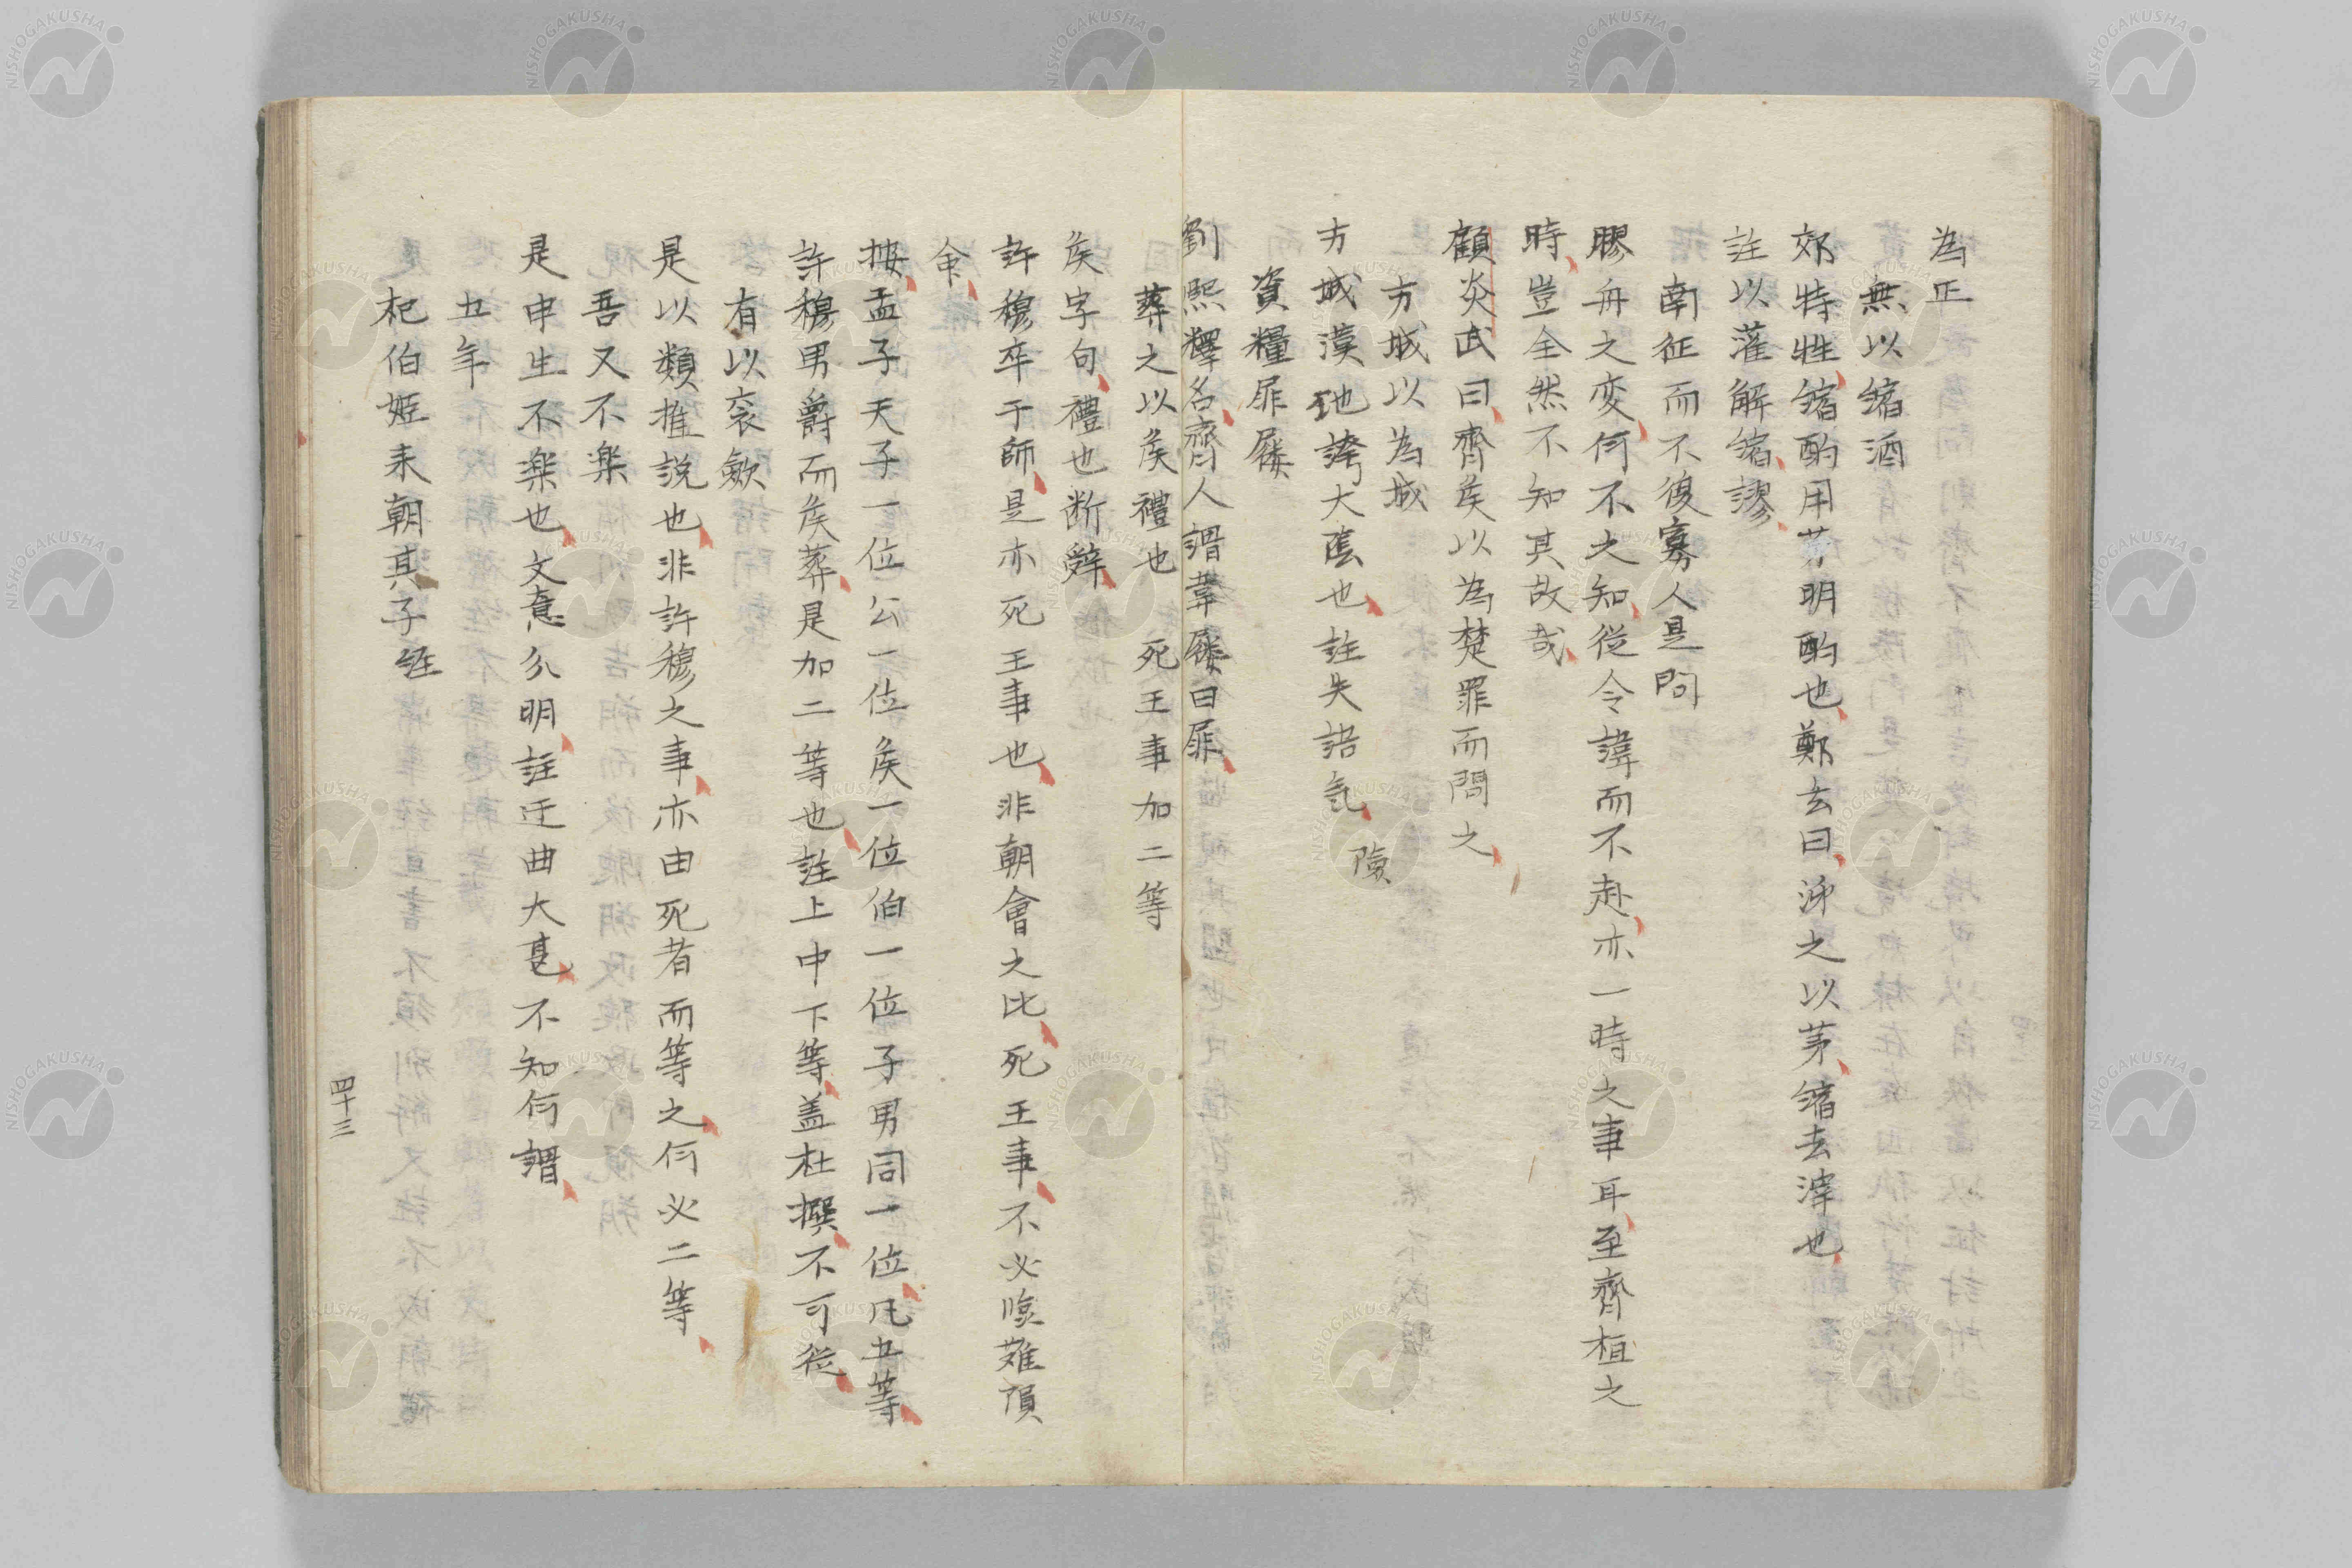 為正
無以縮酒
郊特牲縮酌用茅明酌也鄭玄曰泲之以茅縮去滓也
註以灌解縮謬
南征而不復寡人是問
膠舟之変何不之知從令諱而不赴亦一時之事耳至齊桓之
時豈全然不知其故哉
顧炎武曰齊矦以為楚罪而問之
方城以為城
方城漢池誇大陰也註失語氣
險
資糧屝屨
劉熙釋名齊人謂韋屨曰屝
葬之以矦禮也 死王事加二等
矦字句禮也断辞
許穆卒于師是亦死王事也非朝會之比死王事不必臨難損
命
按孟子天子一位公一位矦一位伯一位子男同一位凡五等
許穆男爵而矦葬是加二等也註上中下等盖杜撰不可從
有以衮斂
是以類推説也非許穆之事亦由死者而等之何必二等
吾又不楽
是申生不楽也文意分明註迂曲大甚不知何謂
五年
杞伯姬来朝其子経
四十三
NISHOGAKUSHA